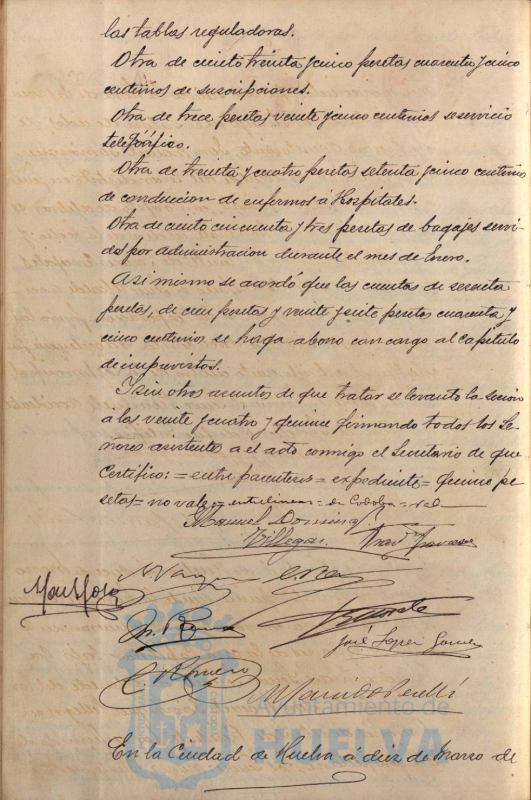 las tablas reguladoras.
Otra de ciento treinta y cinco pesetas cuarenta y cinco
centimos de suscripciones.
Otra de trece pesetas veinte y cinco centimos servicio
telefónico.
Otra de treinta y cuatro pesetas setenta y cinco centimos
de conduccion de enfermos á Hospitales.
Otra de ciento cincuenta y tres pesetas de bagajes servi-
dos por administracion durante el mes de Enero.
Asi mismo se acordó que las cuentas de sesenta
pesetas, de cien pesetas y veinte y siete pesetas cuarenta y
cinco centimos se haga abono con cargo al Capitulo
de imprevistos.
Y sin otros asuntos de que tratar se levanto la sesion
á las veinte y cuatro y quince firmando todos los Se-
ñores asistentes a el acto conmigo el Secretario de que
Certifico: = entre parentesis = expediente = quince pe
setas = no vale = entre lineas = de
Manuel Doming
Villegas
M Vazquez
José Lopez
C. Romero
Ayuntamiento de
HUELVA
En la Ciudad de Huelva á diez de Marzo de